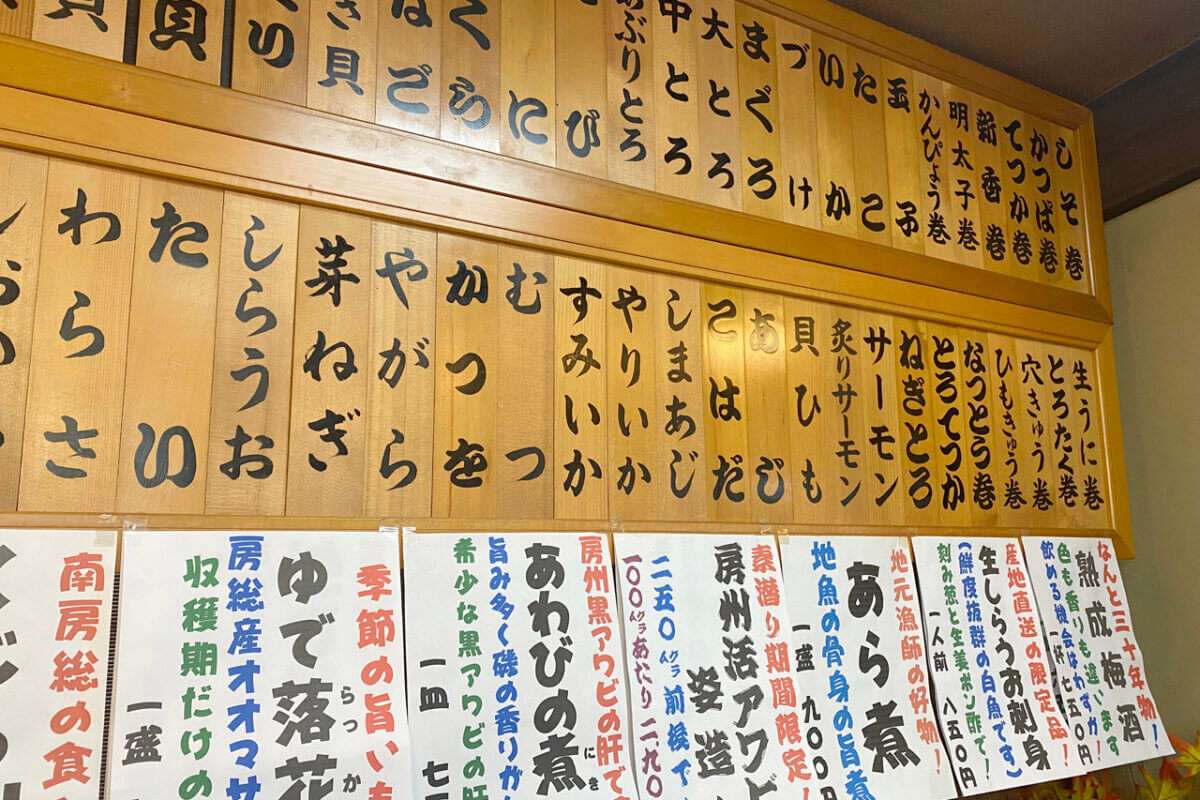 しそ巻
かっぱ巻
てつか巻
新香巻
明太子巻
かんぴょう巻
玉子
たこ
いか
づけ
まぐろ
大とろ
中とろ
あぶりとろ
び
に
くら
はご
き貝
貝
生うに巻
とろたく巻
穴きゅう巻
ひもきゅう巻
なっとう巻
とろてつか
ねぎとろ
サーモン
炙りサーモン
貝ひも
あじ
こはだ
しまあじ
やりいか
すみいか
むつ
かつを
やがら
芽ねぎ
しらうお
たい
わらさ
なんと三十年物!
熟成梅酒
色も香りも違います
飲める機会はわずか!
一杯七五〇円
産地直送の限定品!
生しらうお刺身
(鮮度抜群の白魚です)
刻み葱と生姜ポン酢で!
一人前 八五〇円
地元漁師の好物!
あら煮
地魚の骨身の旨煮
一盛 九〇〇円
素潜り期間限定!
房州活アワビ
姿造
二五〇グラム前後で
一〇〇グラムあたり二二九〇
房州黒アワビの肝で
あわびの煮
にき
旨み多く磯の香りが
希少な黒アワビの肝
一皿 七
季節の旨いも
ゆで落花
らっか
房総産オオマサ
収穫期だけの
一盛
南房総の食